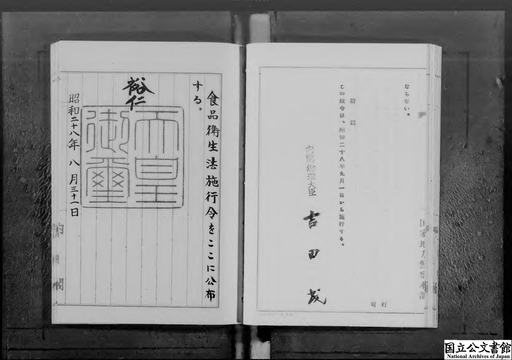 食品衛生法施行令をここに公布
する。
裕仁
天皇御璽
昭和二十八年八月三十一日
ならない。
附則
この政令は、昭和二十八年九月一日から施行する。
内閣総理大臣
吉田茂
国立公文書館
National Archives of Japan